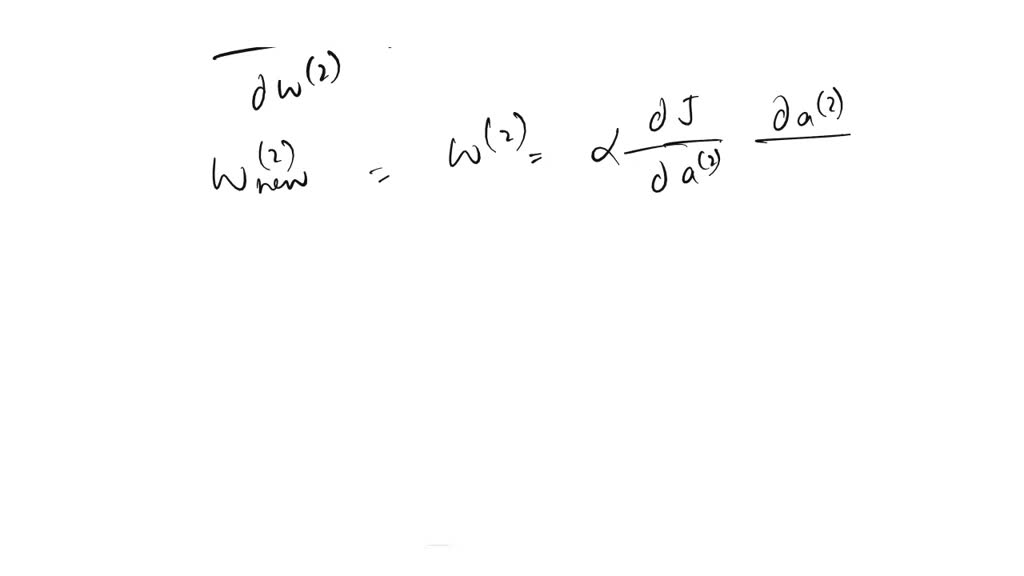 ∂w^(2)
w_new^(2) = w^(2) = α ∂J/∂a^(2) ∂a^(2)/